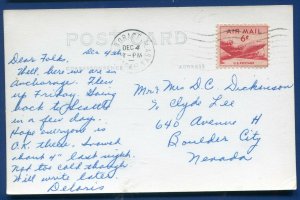 POST CARD
ANCHORAGE
DEC 4
PM
AIR MAIL
6¢
U.S. POSTAGE
ADDRESS
Dec 4th
Dear Folks,
Well, here we are in
Anchorage. Flew
up Friday. Going
back to Seattle
in a few days.
Hope everyone is
O.K. there. Snowed
about 4" last night.
Not too cold though
Will write later
Deloris
Mr & Mrs D C Dickinson
% Clyde Lee
640 Avenue H
Boulder City
Nevada